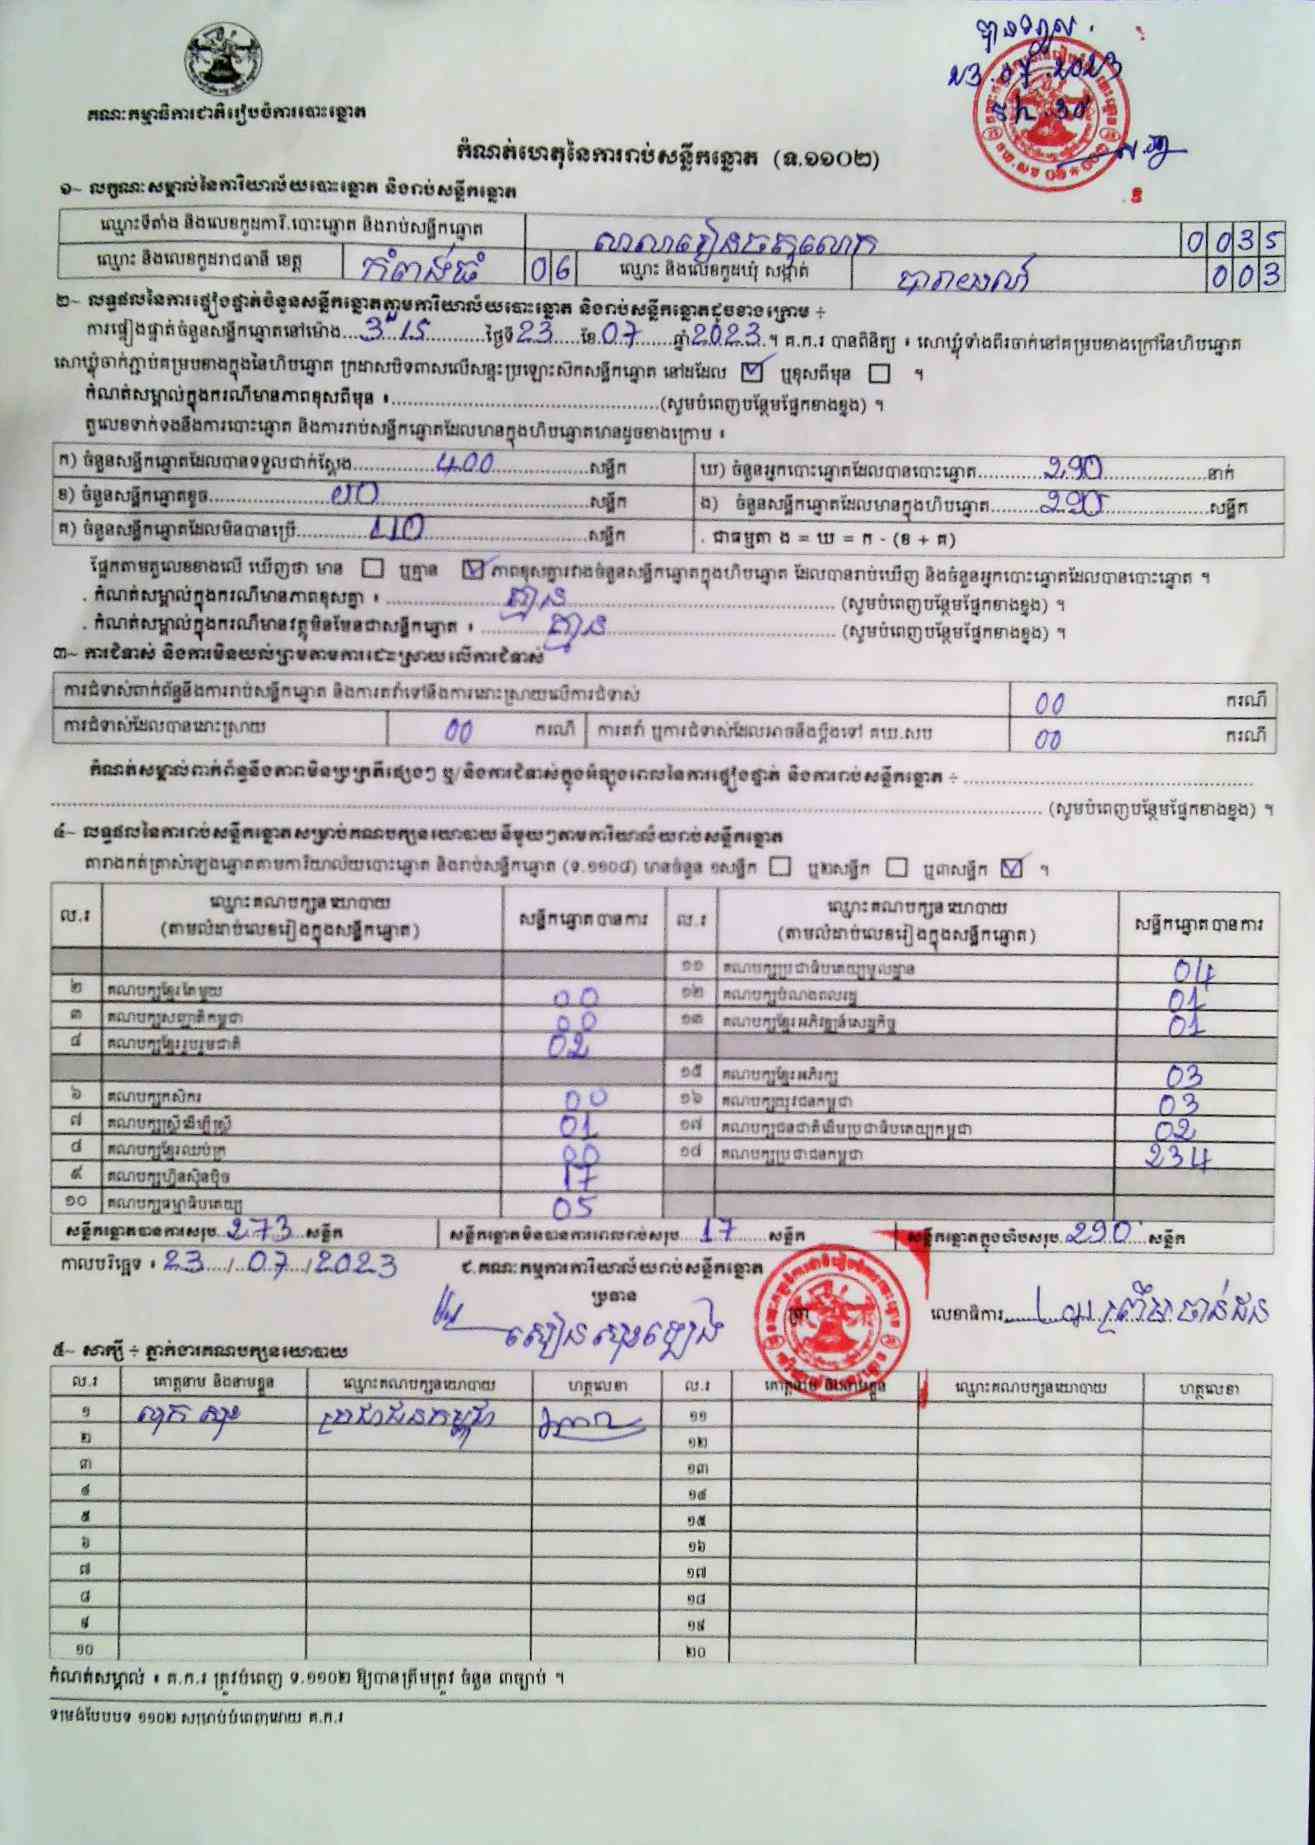 គណៈកម្មាធិការជាតិរៀបចំការបោះឆ្នោត
បានទទួល
23.07.2023
កំណត់ហេតុនៃការរាប់សន្លឹកឆ្នោត (ទ.១១០២)
១~ លក្ខណៈសម្គាល់នៃការិយាល័យបោះឆ្នោត និងរាប់សន្លឹកឆ្នោត
ឈ្មោះទីតាំង និងលេខកូដការិ.បោះឆ្នោត និងរាប់សន្លឹកឆ្នោត 0035
ឈ្មោះ និងលេខកូដរាជធានី ខេត្ត កំពង់ធំ 06 ឈ្មោះ និងលេខកូដឃុំ សង្កាត់ 003
២~ លទ្ធផលនៃការផ្ទៀងផ្ទាត់ចំនួនសន្លឹកឆ្នោតតាមការិយាល័យបោះឆ្នោត និងរាប់សន្លឹកឆ្នោតដូចខាងក្រោម ÷
ការផ្ទៀងផ្ទាត់ចំនួនសន្លឹកឆ្នោតនៅម៉ោង...3 15...ថ្ងៃទី 23 ខែ 07 ឆ្នាំ 2023 ។ គ.ក.រ បានពិនិត្យ ៖ សោឃ្លុំទាំងពីរចាក់នៅគម្របខាងក្រៅនៃហិបឆ្នោត
សោឃ្លុំចាក់ភ្ជាប់គម្របខាងក្នុងនៃហិបឆ្នោត ក្រដាសបិទពាសលើសន្ទះប្រឡោះស៊កសន្លឹកឆ្នោត នៅដដែល ☑ ឬខុសពីមុន ☐ ។
កំណត់សម្គាល់ក្នុងករណីមានភាពខុសពីមុន ៖ ..........(សូមបំពេញបន្ថែមផ្នែកខាងខ្នង) ។
តួលេខទាក់ទងនឹងការបោះឆ្នោត និងការរាប់សន្លឹកឆ្នោតដែលមានក្នុងហិបឆ្នោតមានដូចខាងក្រោម ៖
ក) ចំនួនសន្លឹកឆ្នោតដែលបានទទួលជាក់ស្តែង 400 សន្លឹក ឃ) ចំនួនអ្នកបោះឆ្នោតដែលបានបោះឆ្នោត 290 នាក់
ខ) ចំនួនសន្លឹកឆ្នោតខូច សន្លឹក ង) ចំនួនសន្លឹកឆ្នោតដែលមានក្នុងហិបឆ្នោត 290 សន្លឹក
គ) ចំនួនសន្លឹកឆ្នោតដែលមិនបានប្រើ 110 សន្លឹក . ជាធម្មតា ង = ឃ = ក - (ខ + គ)
ផ្អែកតាមតួលេខខាងលើ ឃើញថា មាន ☐ ឬគ្មាន ☑ ភាពខុសគ្នារវាងចំនួនសន្លឹកឆ្នោតក្នុងហិបឆ្នោត ដែលបានរាប់ឃើញ និងចំនួនអ្នកបោះឆ្នោតដែលបានបោះឆ្នោត ។
. កំណត់សម្គាល់ក្នុងករណីមានភាពខុសគ្នា ៖ គ្មាន (សូមបំពេញបន្ថែមផ្នែកខាងខ្នង) ។
. កំណត់សម្គាល់ក្នុងករណីមានវត្ថុមិនមែនជាសន្លឹកឆ្នោត ៖ គ្មាន (សូមបំពេញបន្ថែមផ្នែកខាងខ្នង) ។
៣~ ការជំទាស់ និងការមិនយល់ព្រមតាមការដោះស្រាយលើការជំទាស់
ការជំទាស់ពាក់ព័ន្ធនឹងការរាប់សន្លឹកឆ្នោត និងការតវ៉ាទៅនឹងការដោះស្រាយលើការជំទាស់ 00 ករណី
ការជំទាស់ដែលបានដោះស្រាយ 00 ករណី ការតវ៉ា ឬការជំទាស់ដែលអាចនឹងប្តឹងទៅ គឃ.សប 00 ករណី
កំណត់សម្គាល់ពាក់ព័ន្ធនឹងភាពមិនប្រក្រតីផ្សេងៗ ឬ/និងការជំទាស់ក្នុងអំឡុងពេលនៃការផ្ទៀងផ្ទាត់ និងការរាប់សន្លឹកឆ្នោត ÷ ..........
..........(សូមបំពេញបន្ថែមផ្នែកខាងខ្នង) ។
៤~ លទ្ធផលនៃការរាប់សន្លឹកឆ្នោតសម្រាប់គណបក្សនយោបាយនីមួយៗតាមការិយាល័យរាប់សន្លឹកឆ្នោត
តារាងកត់ត្រាសំឡេងឆ្នោតតាមការិយាល័យបោះឆ្នោត និងរាប់សន្លឹកឆ្នោត (ទ.១១០៨) មានចំនួន ១សន្លឹក ☐ ឬ២សន្លឹក ☐ ឬ៣សន្លឹក ☑ ។
ល.រ ឈ្មោះគណបក្សនយោបាយ (តាមលំដាប់លេខរៀងក្នុងសន្លឹកឆ្នោត) សន្លឹកឆ្នោតបានការ ល.រ ឈ្មោះគណបក្សនយោបាយ (តាមលំដាប់លេខរៀងក្នុងសន្លឹកឆ្នោត) សន្លឹកឆ្នោតបានការ
១១ គណបក្សប្រជាធិបតេយ្យមូលដ្ឋាន 04
២ គណបក្សខ្មែរតែមួយ 00 ១២ គណបក្សបំណងពលរដ្ឋ 01
៣ គណបក្សសញ្ជាតិកម្ពុជា 00 ១៣ គណបក្សខ្មែរអភិវឌ្ឍន៍សេដ្ឋកិច្ច 01
៤ គណបក្សខ្មែររួបរួមជាតិ 02
១៥ គណបក្សខ្មែរអភិរក្ស 03
៦ គណបក្សកសិករ 00 ១៦ គណបក្សយុវជនកម្ពុជា 03
៧ គណបក្សស្ត្រីដើម្បីស្ត្រី 01 ១៧ គណបក្សជនជាតិដើមប្រជាធិបតេយ្យកម្ពុជា 02
៨ គណបក្សខ្មែរឈប់ក្រ 00 ១៨ គណបក្សប្រជាជនកម្ពុជា 234
៩ គណបក្សហ្វ៊ុនស៊ិនប៉ិច 17
១០ គណបក្សធម្មាធិបតេយ្យ 05
សន្លឹកឆ្នោតបានការសរុប 273 សន្លឹក សន្លឹកឆ្នោតមិនបានការពេលរាប់សរុប 17 សន្លឹក សន្លឹកឆ្នោតក្នុងហិបសរុប 290 សន្លឹក
កាលបរិច្ឆេទ ៖ 23/07/2023 ៩.គណៈកម្មការការិយាល័យរាប់សន្លឹកឆ្នោត
ប្រធាន
លេខាធិការ
៥~ សាក្សី ÷ ភ្នាក់ងារគណបក្សនយោបាយ
ល.រ គោត្តនាម និងនាមខ្លួន ឈ្មោះគណបក្សនយោបាយ ហត្ថលេខា ល.រ គោត្តនាម និងនាមខ្លួន ឈ្មោះគណបក្សនយោបាយ ហត្ថលេខា
១ ប្រជាជនកម្ពុជា ១១
២ ១២
៣ ១៣
៤ ១៤
៥ ១៥
៦ ១៦
៧ ១៧
៨ ១៨
៩ ១៩
១០ ២០
កំណត់សម្គាល់ ៖ គ.ក.រ ត្រូវបំពេញ ទ.១១០២ ឱ្យបានត្រឹមត្រូវ ចំនួន ៣ច្បាប់ ។
ទម្រង់បែបបទ ១១០២ សម្រាប់បំពេញដោយ គ.ក.រ